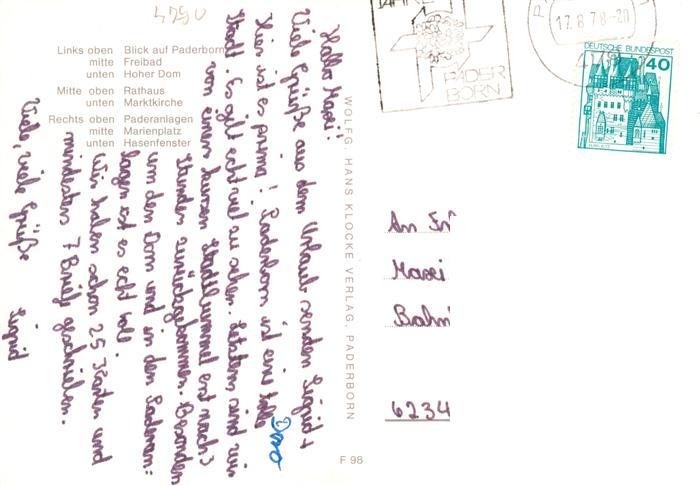 0544
Links oben Blick auf Paderborn
mitte Freibad
unten Hoher Dom
Mitte oben Rathaus
unten Marktkirche
Rechts oben Paderanlagen
mitte Marienplatz
unten Hasenfenster
Hallo Marei!
Viele Grüße aus dem Urlaub senden Sigrid +
Doro
Hier ist es prima! Paderborn ist eine tolle
Stadt. Es gibt echt viel zu sehen. Letztens sind wir
von einem kurzen Stadtbummel erst nach 3
Stunden zurückgekommen. Besonders
um den Dom und in den Paderan=
lagen ist es echt toll.
Wir haben schon 25 Karten und
mindestens 7 Briefe geschrieben.
Viele, viele Grüße
Sigrid
WOLFG. HANS KLOCKE VERLAG, PADERBORN
F 98
PADER
BORN
17.8.78-20
DEUTSCHE BUNDESPOST
40
BURG ELTZ
An Fr
Marei
Bahn
6234